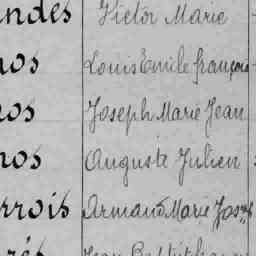 ndes Victor Marie
nos Louis Emile françois
nos Joseph Marie Jean
nos Auguste Julien
rrois Armand Marie Josph
rés Jean Baptiste